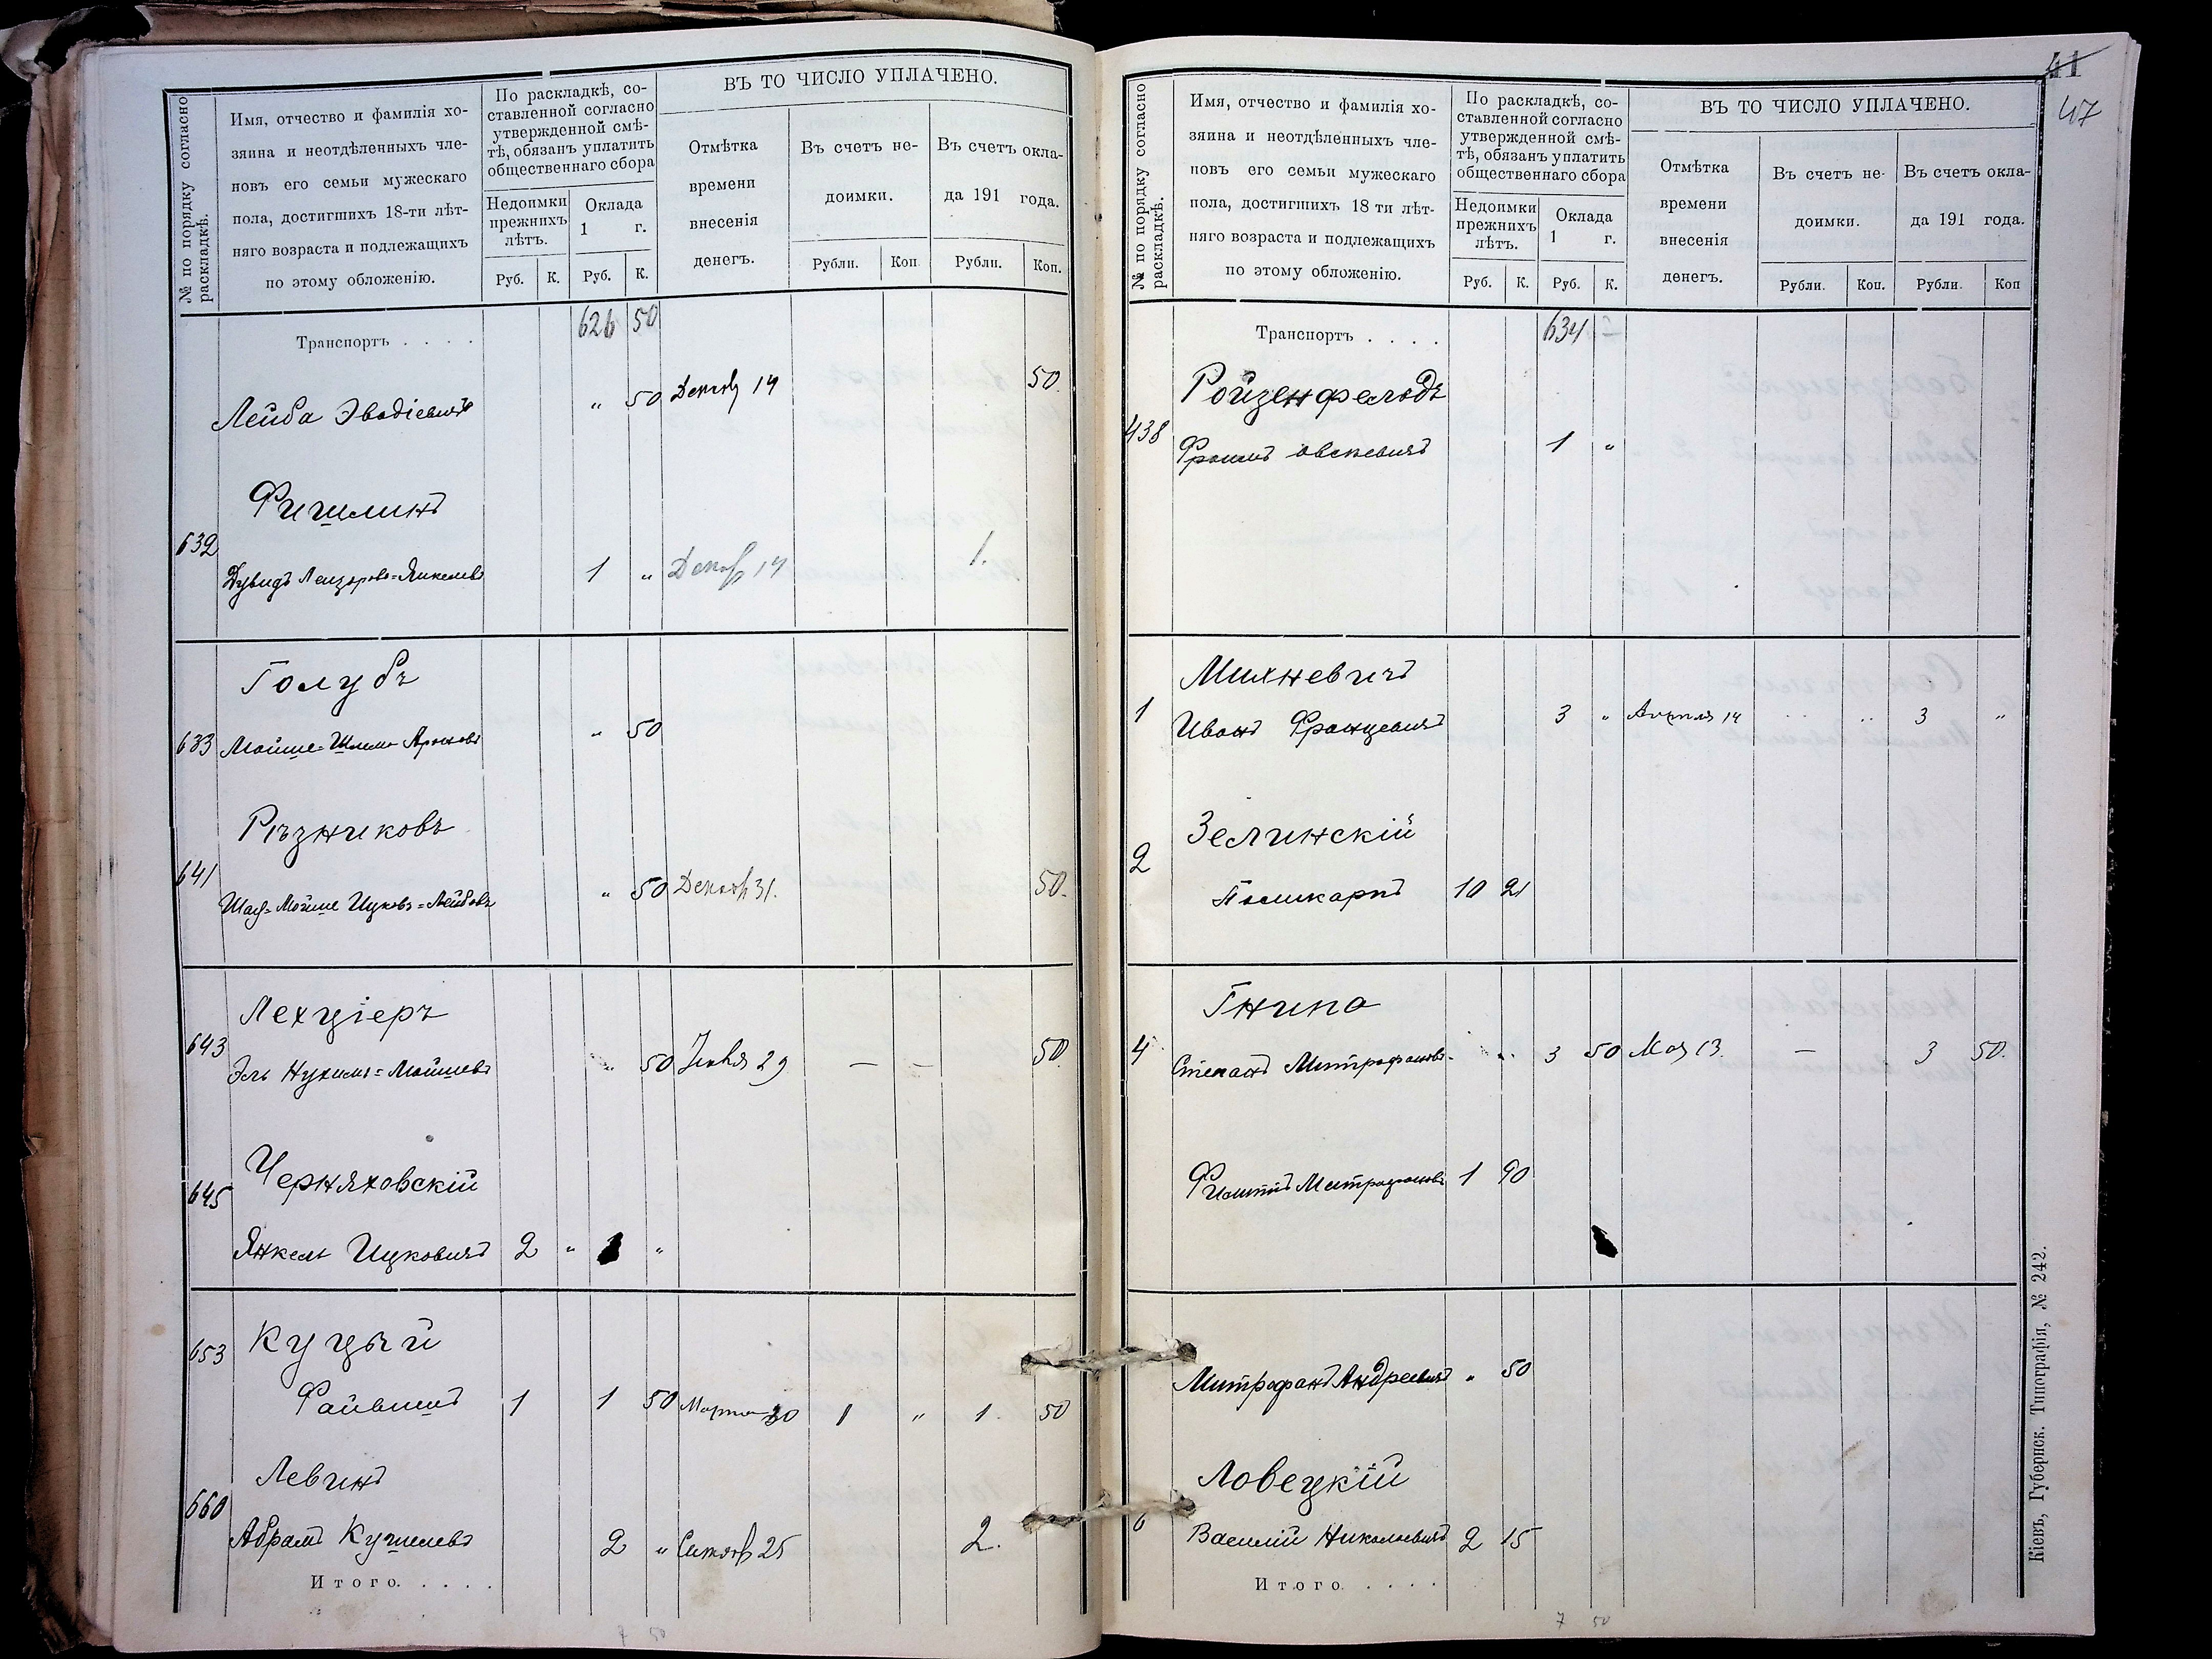 № по порядку согласно раскладкѣ.
Имя, отчество и фамилія хо-
зяина и неотдѣленныхъ чле-
новъ его семьи мужескаго
пола, достигшихъ 18-ти лѣт-
няго возраста и подлежащихъ
по этому обложенію.
По раскладкѣ, со-
ставленной согласно
утвержденной смѣ-
тѣ, обязанъ уплатить
общественнаго сбора
Недоимки
прежнихъ
лѣтъ.
Оклада
1 г.
Руб. К. Руб. К.
ВЪ ТО ЧИСЛО УПЛАЧЕНО.
Отмѣтка
времени
внесенія
денегъ.
Въ счетъ не-
доимки.
Въ счетъ окла-
да 191 года.
Рубли. Коп. Рубли. Коп.
Транспортъ . . . . 626 50
Лейба " 50 14 50.
Фишлинъ
632
Дувидъ Лейзоровъ=Янкелевъ 1 " 14 1.
Голубъ
633 Мойше=Шлема Ароновъ " 50
Рѣзниковъ
641
Шая=Мойше Ицковъ=Лейбовъ " 50 Декабр 31. 50.
Лехціеръ
643
Эль Нухимъ=Мойшевъ " 50 29 — — 50
Черняховскій
645
Янкель Ицковичъ 2 " 1 "
653 Куцый
Файвишъ 1 1 50 Марта 30 1 " 1. 50
Левинъ
660
Абрамъ Кушелевъ 2 " Сентяб 25 2.
Итого. . . . .
7 50
41
47
№ по порядку согласно раскладкѣ.
Имя, отчество и фамилія хо-
зяина и неотдѣленныхъ чле-
новъ его семьи мужескаго
пола, достигшихъ 18 ти лѣт-
няго возраста и подлежащихъ
по этому обложенію.
По раскладкѣ, со-
ставленной согласно
утвержденной смѣ-
тѣ, обязанъ уплатить
общественнаго сбора
Недоимки
прежнихъ
лѣтъ.
Оклада
1 г.
Руб. К. Руб. К.
ВЪ ТО ЧИСЛО УПЛАЧЕНО.
Отмѣтка
времени
внесенія
денегъ.
Въ счетъ не-
доимки.
Въ счетъ окла-
да 191 года.
Рубли. Коп. Рубли. Коп
Транспортъ . . . . 634 —
Ройзенфельдъ
438
Фроимъ 1 "
Михневичъ
1
Иванъ Францевичъ 3 " Апреля 14 3 "
Зелинскій
2
Поликарпъ 10 21
Гнипа
4
Степанъ Митрофановъ 3 50 Мая 13. — 3 50.
Филиппъ Митрофановъ 1 90
Митрофанъ Андреевичъ " 50
Ловецкій
6
Василій Николаевичъ 2 15
Итого . . . .
7 50
Кіевъ, Губернск. Типографія, № 242.